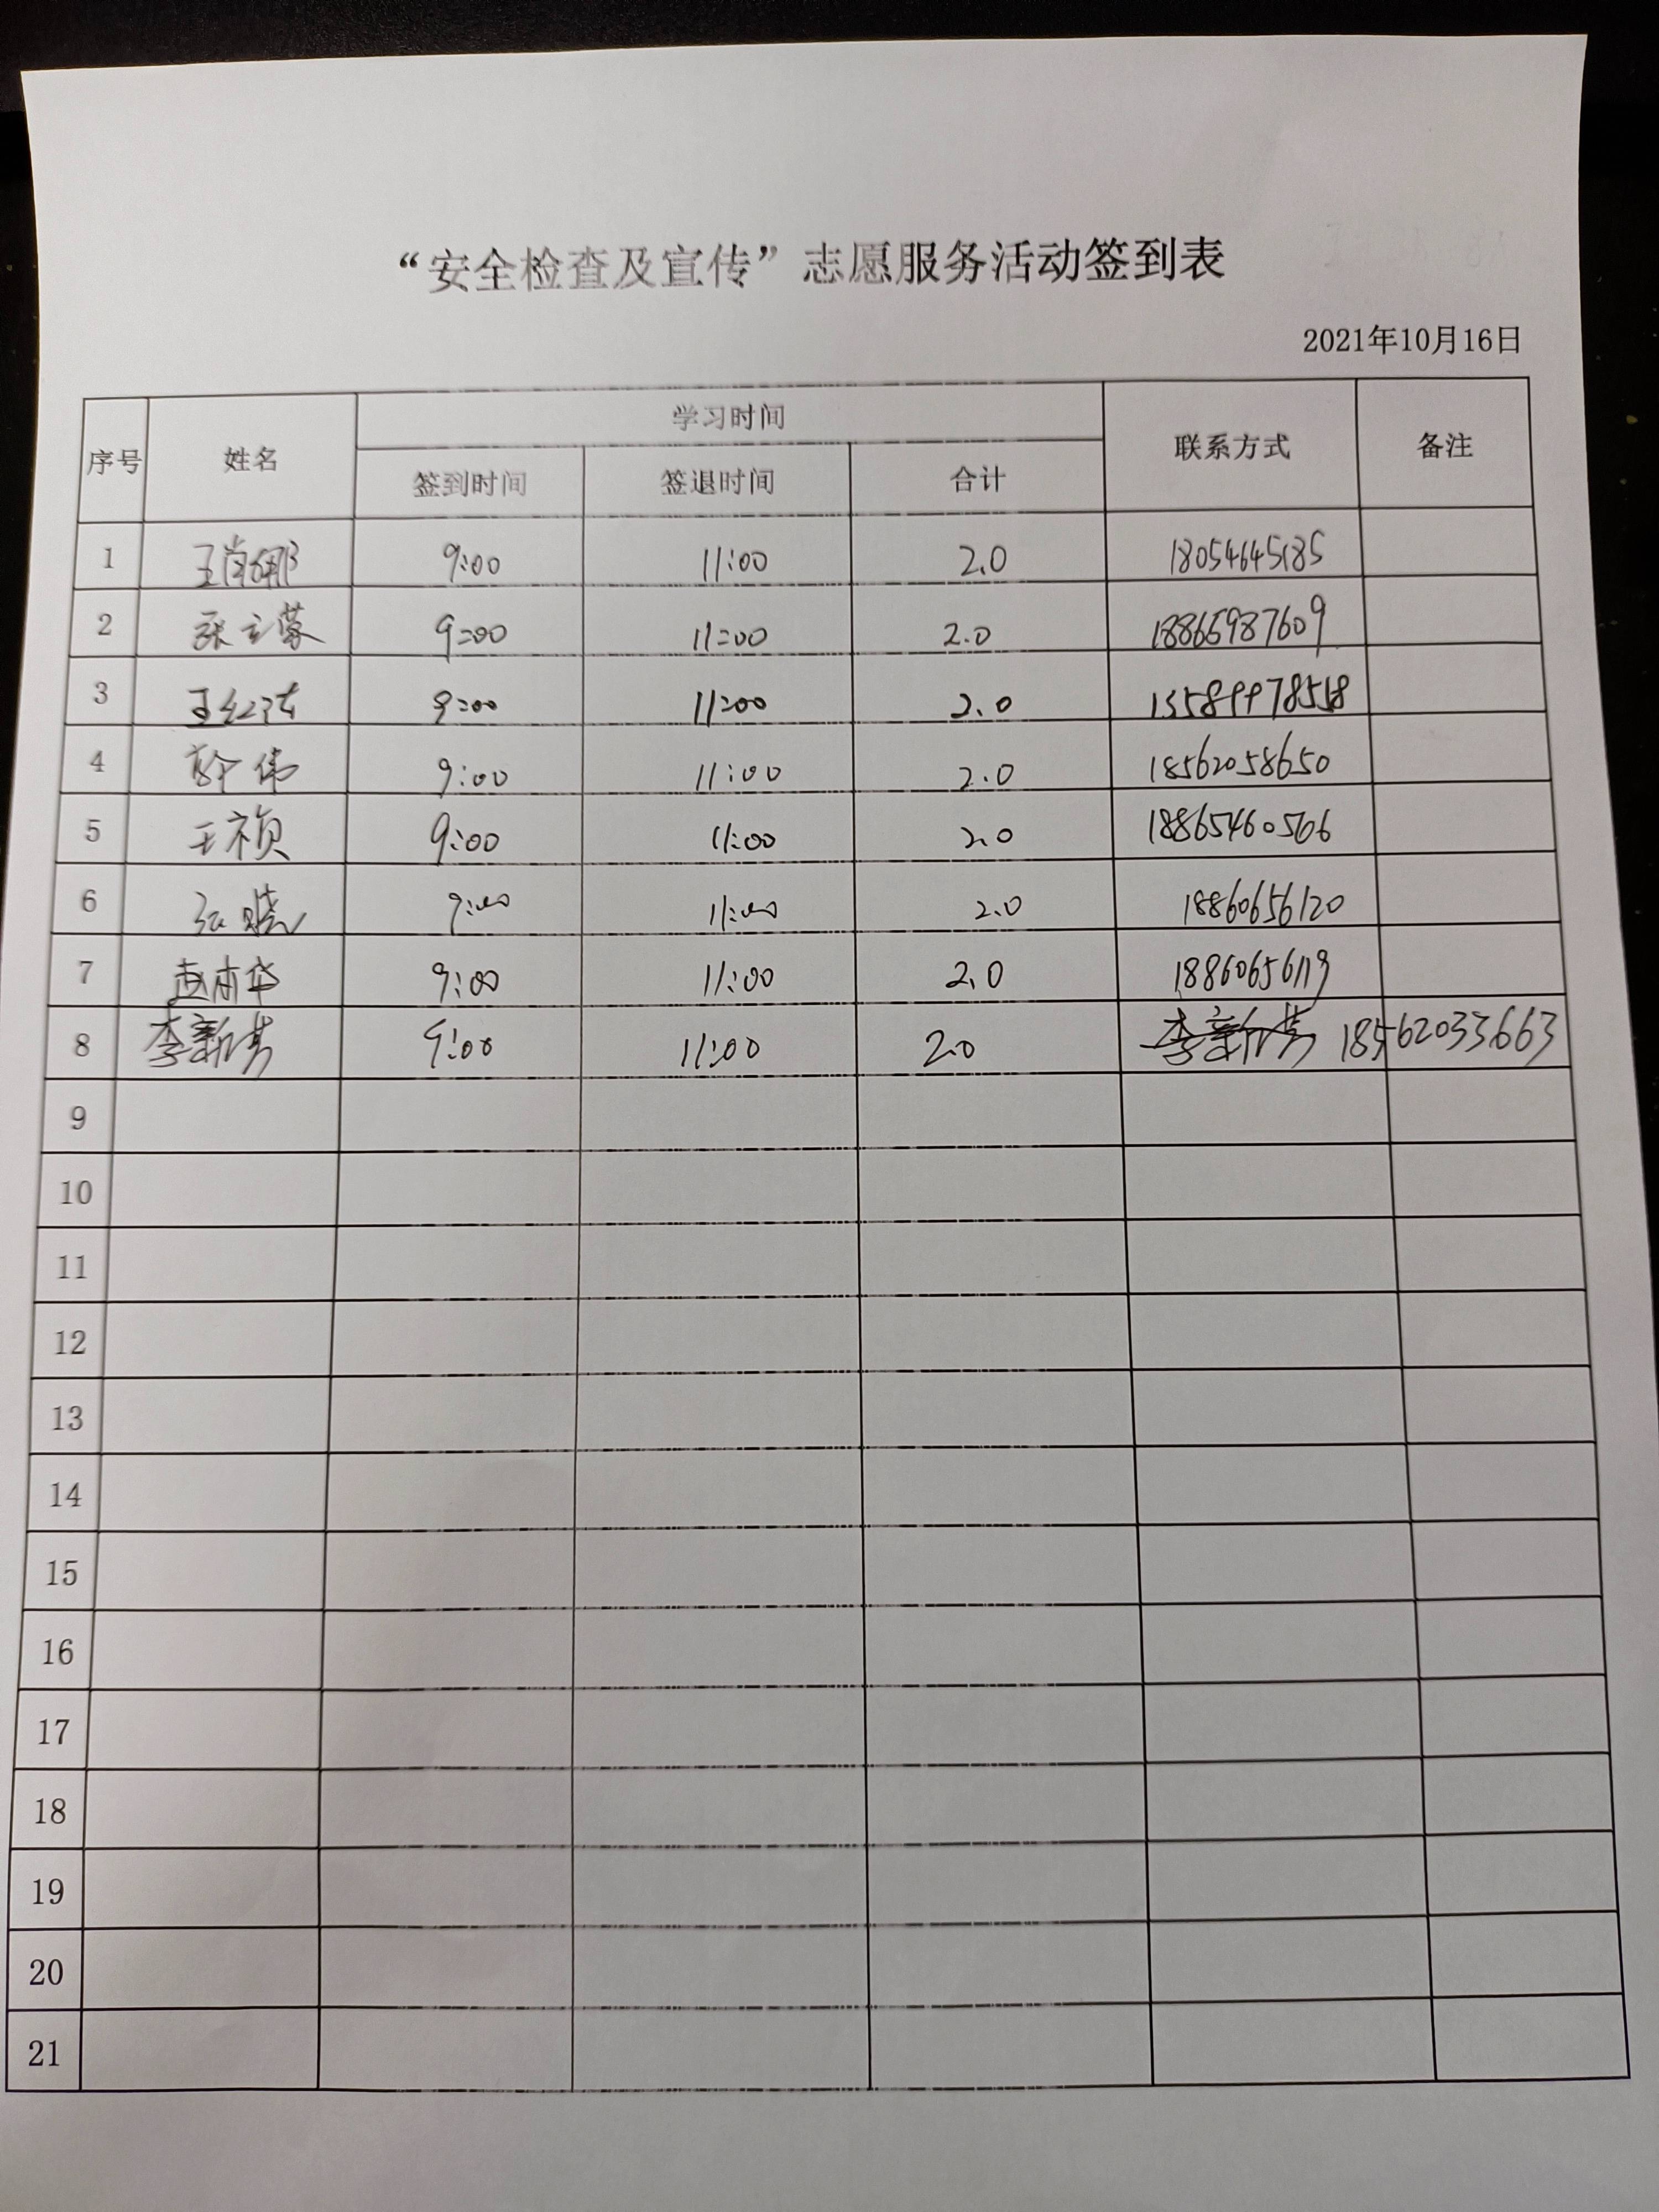 “安全检查及宣传”志愿服务活动签到表
2021年10月16日
序号 姓名 学习时间 联系方式 备注
签到时间 签退时间 合计
1 王肖娜 9:00 11:00 2.0 18054645185
2 张立蒙 9:00 11:00 2.0 18866987609
3 9:00 11:00 2.0 15589978518
4 郭伟 9:00 11:00 2.0 18562058650
5 王祯 9:00 11:00 2.0 18865460566
6 张晓 9:00 11:00 2.0 18860656120
7 赵本华 9:00 11:00 2.0 18860656119
8 李新芳 9:00 11:00 2.0 李新芳 18562033663
9
10
11
12
13
14
15
16
17
18
19
20
21